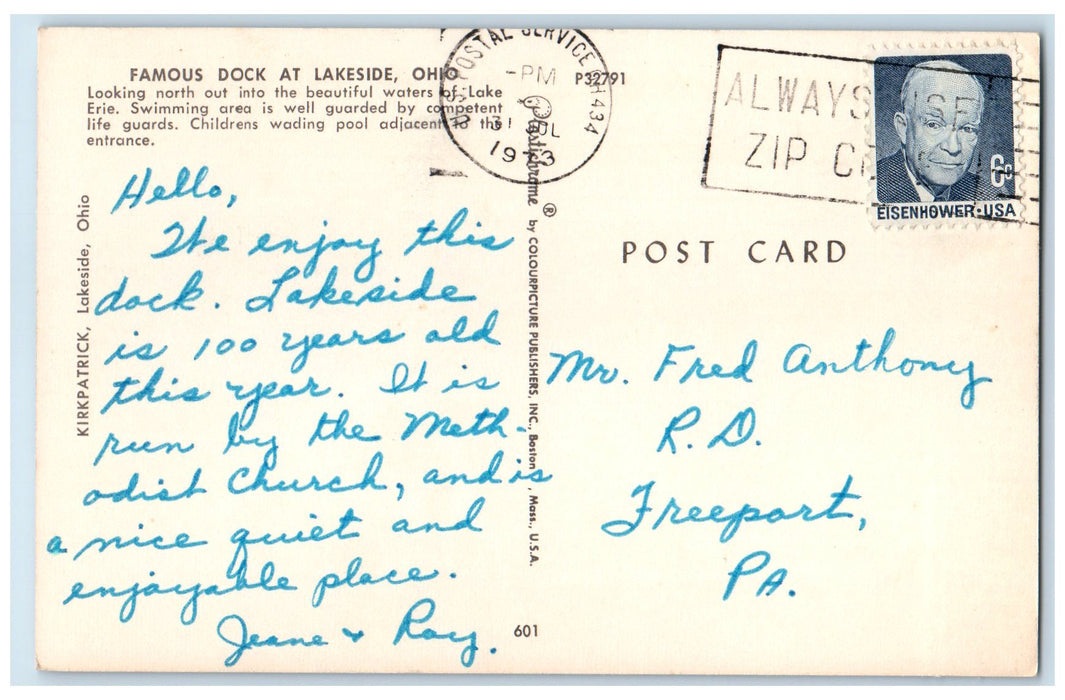 FAMOUS DOCK AT LAKESIDE, OHIO
Looking north out into the beautiful waters of Lake
Erie. Swimming area is well guarded by competent
life guards. Childrens wading pool adjacent to the
entrance.
P32791
U.S. POSTAL SERVICE OH 434
-PM
31 JUL
1973
ALWAYS USE
ZIP CODE
6c
EISENHOWER·USA
KIRKPATRICK, Lakeside, Ohio
Hello,
We enjoy this
dock. Lakeside
is 100 years old
this year. It is
run by the Meth-
odist Church, and is
a nice quiet and
enjoyable place.
Jeane + Roy.
Plastichrome ® by COLOURPICTURE PUBLISHERS, INC., Boston, Mass., U.S.A.
601
POST CARD
Mr. Fred Anthony
R. D.
Freeport,
PA.